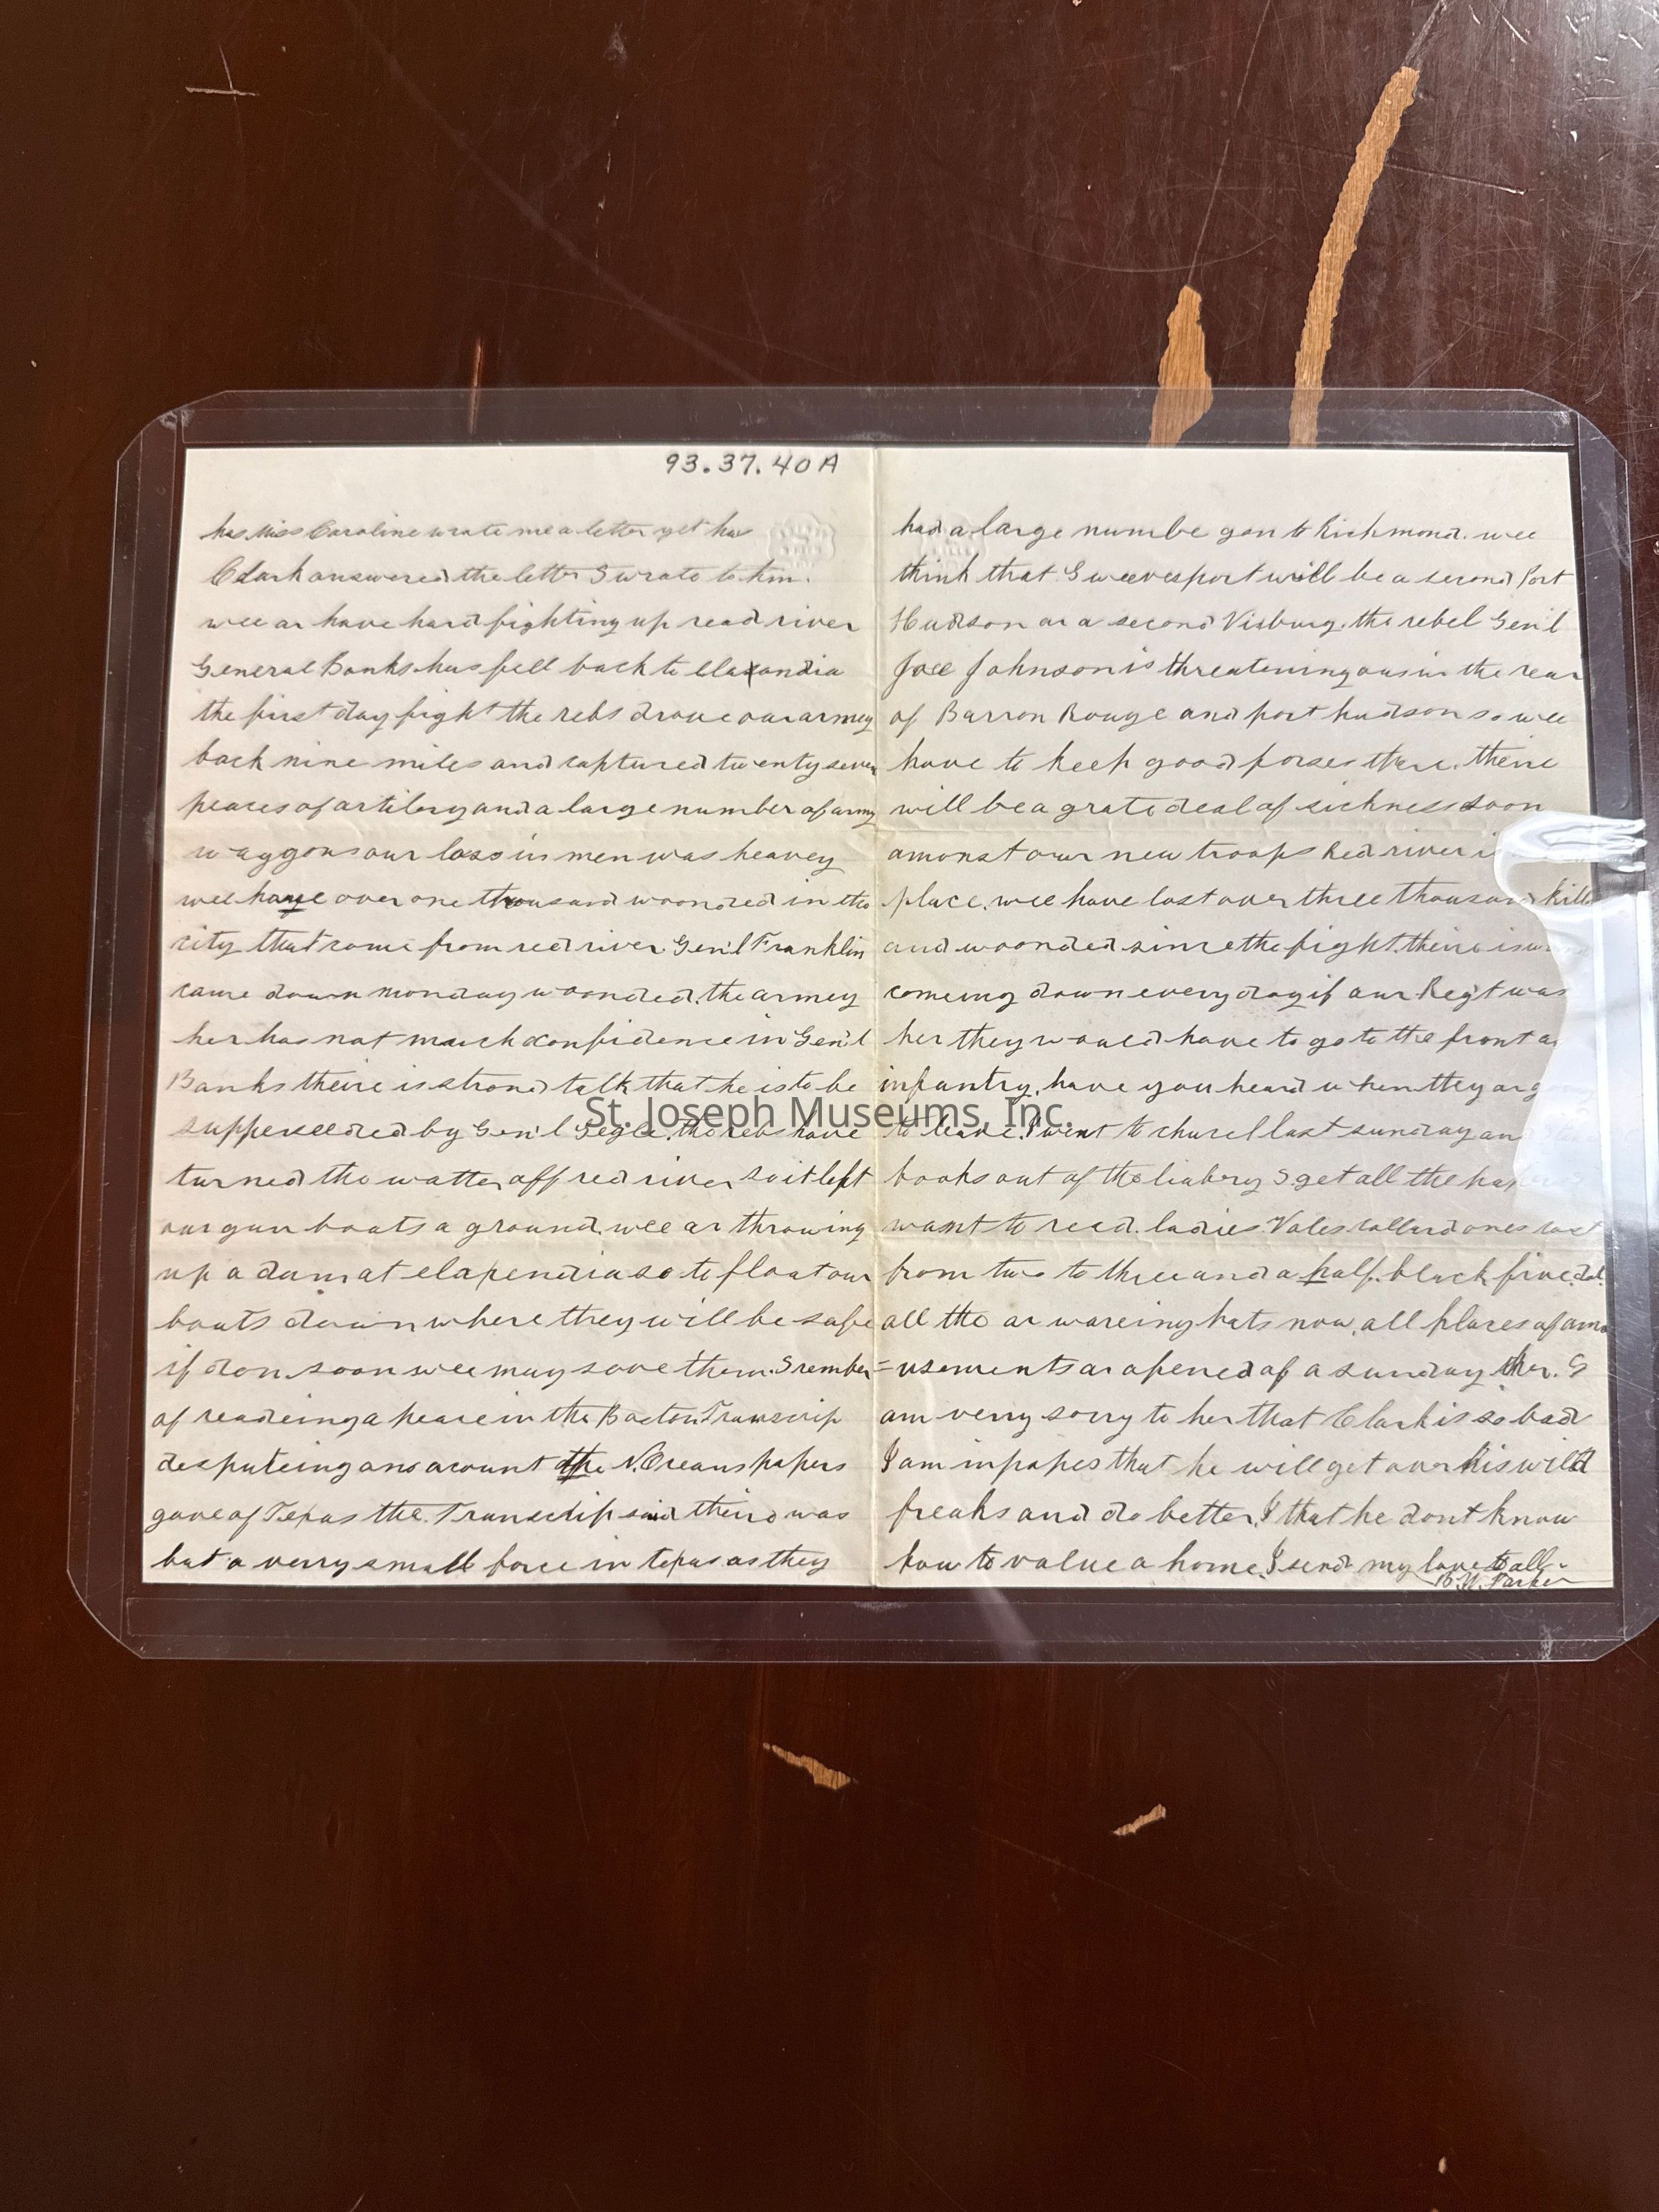 93.37.40A
has Miss Caroline wrote me a letter yet has
Clark answered the letter I wrote to him.
wee ar have hard fighting up read river
General Banks has fell back to
the first day fight the rebs drove our armey
back nine miles and captured twenty seven
peaces of artilery and a large number of army
waggons our loss in men was heavey
wee have over one thousand woonded in the
city that come from red river Gen'l Franklin
came down monday woonded. the armey
her has not much confidence in Gen'l
Banks theire is strond talk that he is to be
by Gen'l the rebs have
turned the watter off red river so it left
our gun boats a ground. wee ar throwing
up a dam at elapendria so to float our
boats down where they will be safe
if don soon wee may save them. I rember
of readeing a peace in the Boston Transcrip
desputeing ano acount the N. Oreans papers
gave of Texas the. Transcrip said theire was
but a verry small force in texas as they
had a large numbe gon to Richmond. wee
think that will be a second Port
Hudson or a second Visburg. the rebel Gen'l
Joee Johnson is threatening ous in the rear
of Barron Rouge and port hudson so wee
have to keep good forses there. theire
will be a grate deal of sichness soon
amonst our new troops Red river
place. wee have lost over three thousand
and woonded since the fight. theire is
comeing down every day if our Reg't was
her they would have to go to the front
infantry. have you heard when they ar
to leave. I went to church last sunday
books out of the I get all the
want to read. ladies. Vales collurd ones cost
from two to three and a half. black five. dol.
all the ar wareing hats now. all places of am
=usements ar opened of a sunday ther. I
am verry sorry to her that Clark is so bad
I am in hopes that he will get over his wild
freaks and do better. I that he dont know
how to value a home. I send my love to all
W. Parker
St. Joseph Museums, Inc.